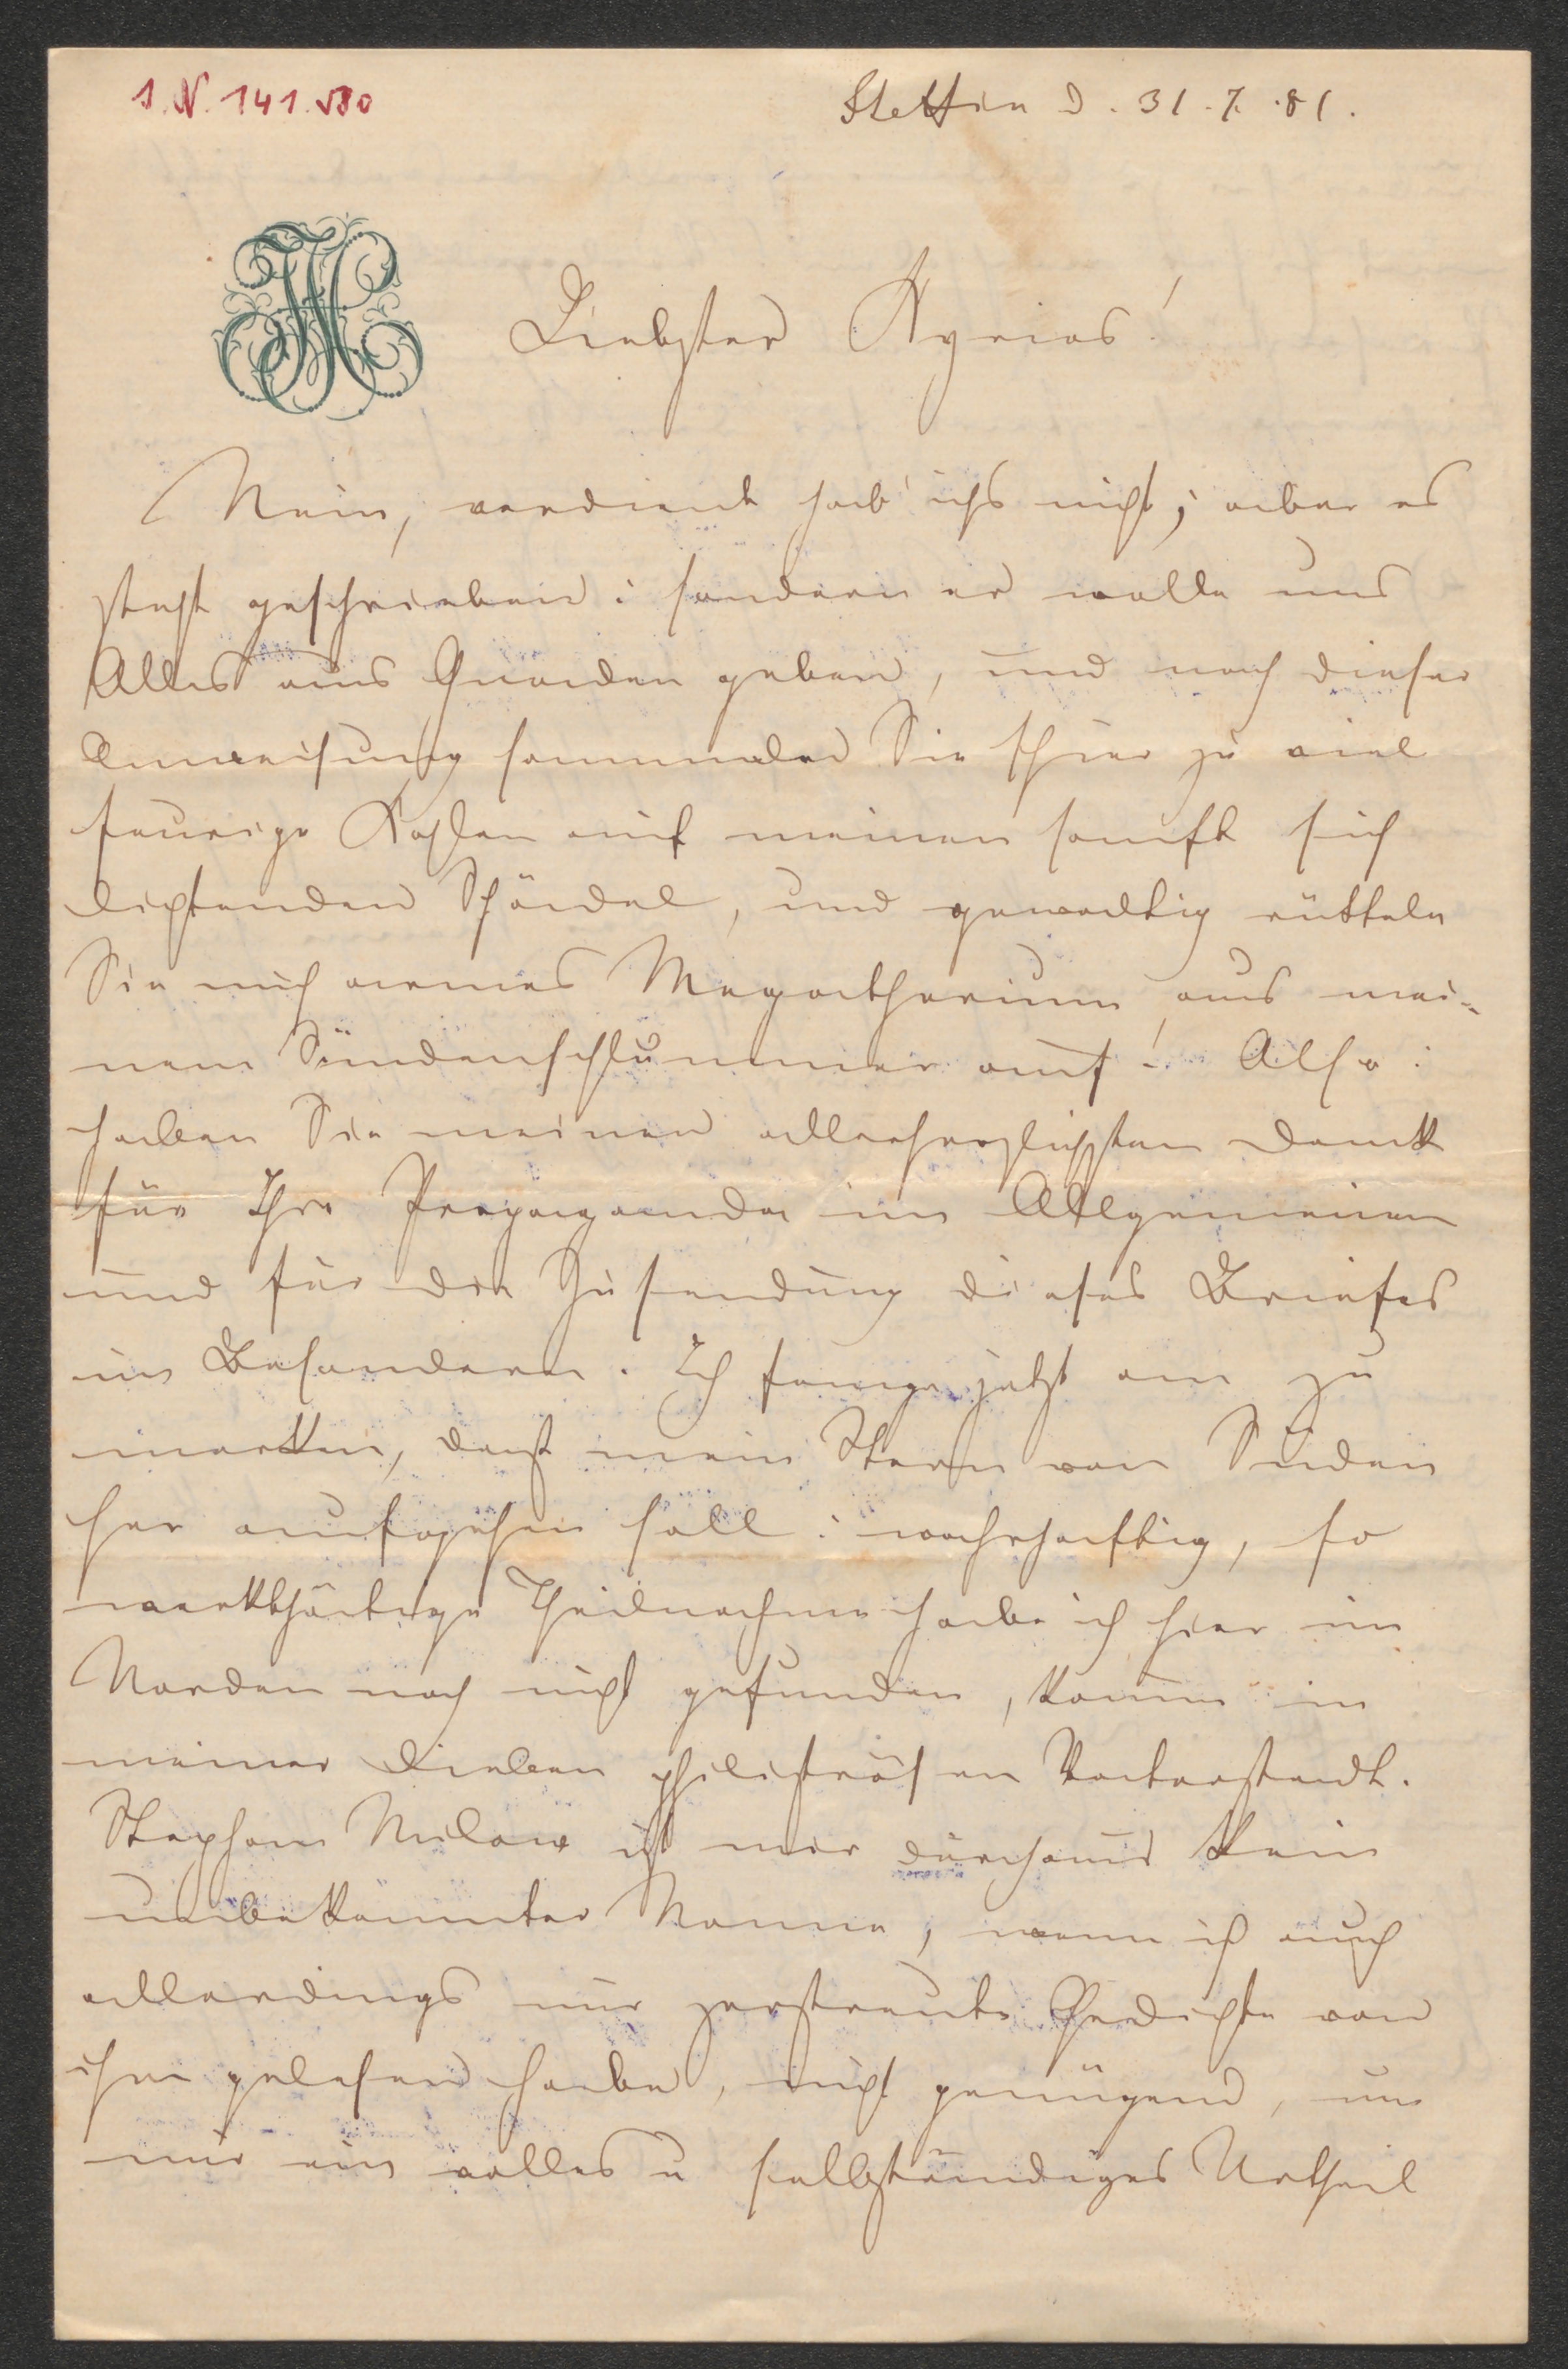 I.N. 141.580
Stettin d. 31.7.81.
JH
Liebster Kyrios!
Nein, verdient hab' ichs nicht; aber es
steht geschrieben: sondern er wolle uns
Alles aus Gnaden geben, und nach dieser
Anweisung sammeln Sie schier zu viel
feurige Kohlen auf meinen sanft sich
lichtenden Schädel, und gewaltig rütteln
Sie mich armes Megatherium aus mei-
nem Sündenschlummer auf! Also:
haben Sie meinen allerherzlichsten Dank
für Ihre Propaganda im Allgemeinen
und für die Zusendung dieses Briefes
im Besondern. Ich fange jetzt an zu
merken, daß mein Stern von Süden
her aufgehen soll: wahrhaftig, so
werkthätige Theilnahme habe ich hier im
Norden noch nicht gefunden, kaum in
meiner lieben philiströsen Vaterstadt.
Stephan Milow ist mir durchaus kein
unbekannter Name, wenn ich auch
allerdings nur zerstreute Gedichte von
ihm gelesen habe, nicht genügend, um
mir ein volles u selbständiges Urtheil